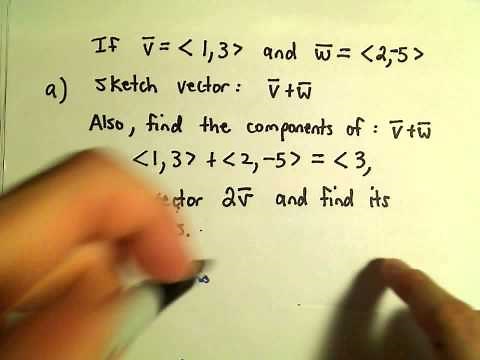 If v̅ = < 1, 3 > and w̅ = < 2, -5 >
a) Sketch vector : v̅ + w̅
Also, find the components of : v̅ + w̅
< 1, 3 > + < 2, -5 > = < 3,
2v̅ and find its